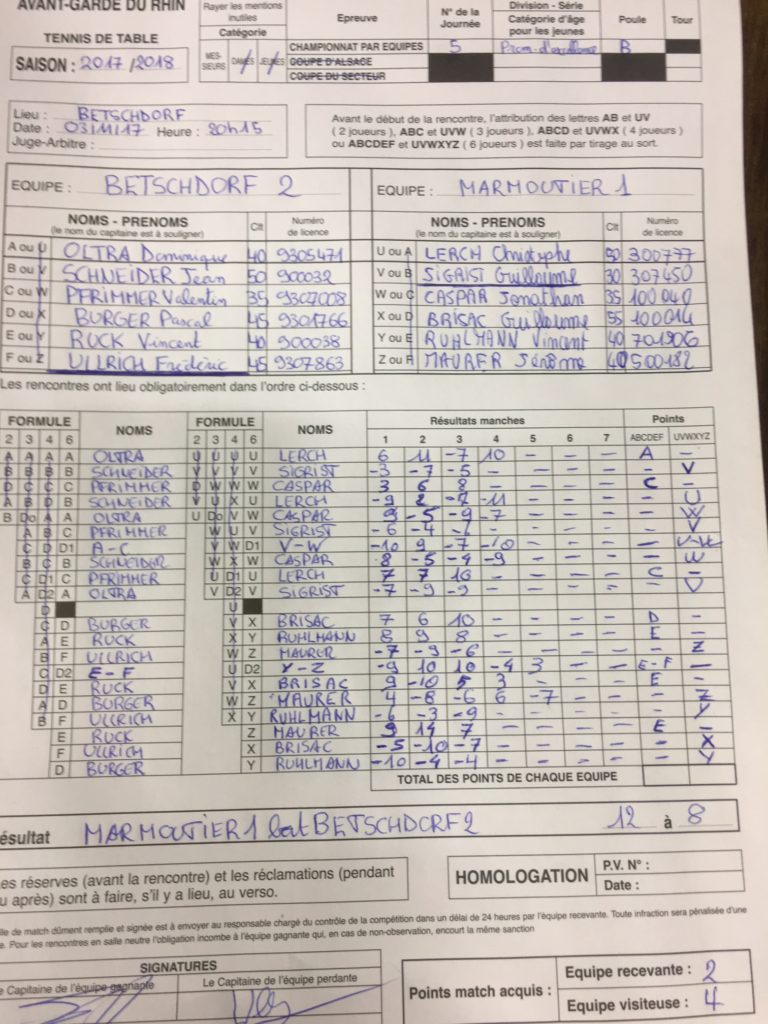 AVANT-GARDE DU RHIN
TENNIS DE TABLE
SAISON : 2017/2018
Rayer les mentions inutiles
Catégorie
MES-SIEURS DAMES JEUNES
Epreuve
CHAMPIONNAT PAR EQUIPES
COUPE D'ALSACE
COUPE DU SECTEUR
N° de la Journée
5
Division - Série
Catégorie d'âge pour les jeunes
Prom. d'excellence
Poule
B
Tour
Lieu : BETSCHDORF
Date : 03/11/17 Heure : 20h15
Juge-Arbitre :
Avant le début de la rencontre, l'attribution des lettres AB et UV
( 2 joueurs ), ABC et UVW ( 3 joueurs ), ABCD et UVWX ( 4 joueurs )
ou ABCDEF et UVWXYZ ( 6 joueurs ) est faite par tirage au sort.
EQUIPE : BETSCHDORF 2
EQUIPE : MARMOUTIER 1
NOMS - PRENOMS (le nom du capitaine est à souligner) Clt Numéro de licence
NOMS - PRENOMS (le nom du capitaine est à souligner) Clt Numéro de licence
A ou U OLTRA Dominique 40 9305471
U ou A LERCH Christophe 50 300777
B ou V SCHNEIDER Jean 50 900032
V ou B SIGRIST Guillaume 30 307450
C ou W PFRIMMER Valentin 35 9307008
W ou C CASPAR Jonathan 35 100040
D ou X BURGER Pascal 45 9301766
X ou D BRISAC Guillaume 55 100014
E ou Y RUCK Vincent 40 900038
Y ou E RUHLMANN Vincent 40 701906
F ou Z ULLRICH Frédéric 45 9307863
Z ou F MAURER Jérôme 40 500182
Les rencontres ont lieu obligatoirement dans l'ordre ci-dessous :
FORMULE NOMS FORMULE NOMS Résultats manches Points
2 3 4 6 2 3 4 6 1 2 3 4 5 6 7 ABCDEF UVWXYZ
A A A A OLTRA U U U U LERCH 6 11 -7 10 - - - A -
B B B B SCHNEIDER V V V V SIGRIST -3 -7 -5 - - - - - V
D C C C PFRIMMER D W W W CASPAR 3 6 8 - - - - C -
A B D B SCHNEIDER V U X U LERCH -9 2 -7 -11 - - - - U
B Do A A OLTRA U Do V W CASPAR 9 -5 -9 -7 - - - - W
A B C PFRIMMER W U V SIGRIST -6 -4 -7 - - - - - V
C D D1 A-C V W D1 V-W -10 9 -7 -10 - - - - V-W
B C B SCHNEIDER W X W CASPAR 8 -5 -4 -9 - - - - W
C D1 C PFRIMMER U D1 U LERCH 7 7 10 - - - - C -
A D2 A OLTRA V D2 V SIGRIST -7 -9 -9 - - - - - V
D U
C D BURGER V X BRISAC 7 6 10 - - - - D -
A E RUCK X Y RUHLMANN 8 9 8 - - - - E -
B F ULLRICH W Z MAURER -7 -9 -6 - - - - - Z
C D2 E-F U D2 Y-Z -9 10 10 -4 3 - - E-F -
D E RUCK V X BRISAC 9 -10 5 3 - - - E -
A D BURGER W Z MAURER 4 -8 -6 6 -7 - - - Z
B F ULLRICH X Y RUHLMANN -6 -3 -9 - - - - - Y
E RUCK Z MAURER 9 14 7 - - - - E -
F ULLRICH X BRISAC -5 -10 -7 - - - - - X
D BURGER Y RUHLMANN -10 -4 -4 - - - - - Y
TOTAL DES POINTS DE CHAQUE EQUIPE
ésultat MARMOUTIER 1 bat BETSCHDORF 2 12 à 8
es réserves (avant la rencontre) et les réclamations (pendant
u après) sont à faire, s'il y a lieu, au verso.
HOMOLOGATION
P.V. N° :
Date :
lle de match dûment remplie et signée est à envoyer au responsable chargé du contrôle de la compétition dans un délai de 24 heures par l'équipe recevante. Toute infraction sera pénalisée d'une
e. Pour les rencontres en salle neutre l'obligation incombe à l'équipe gagnante qui, en cas de non-observation, encourt la même sanction
SIGNATURES
e Capitaine de l'équipe gagnante
Le Capitaine de l'équipe perdante
Points match acquis :
Equipe recevante : 2
Equipe visiteuse : 4